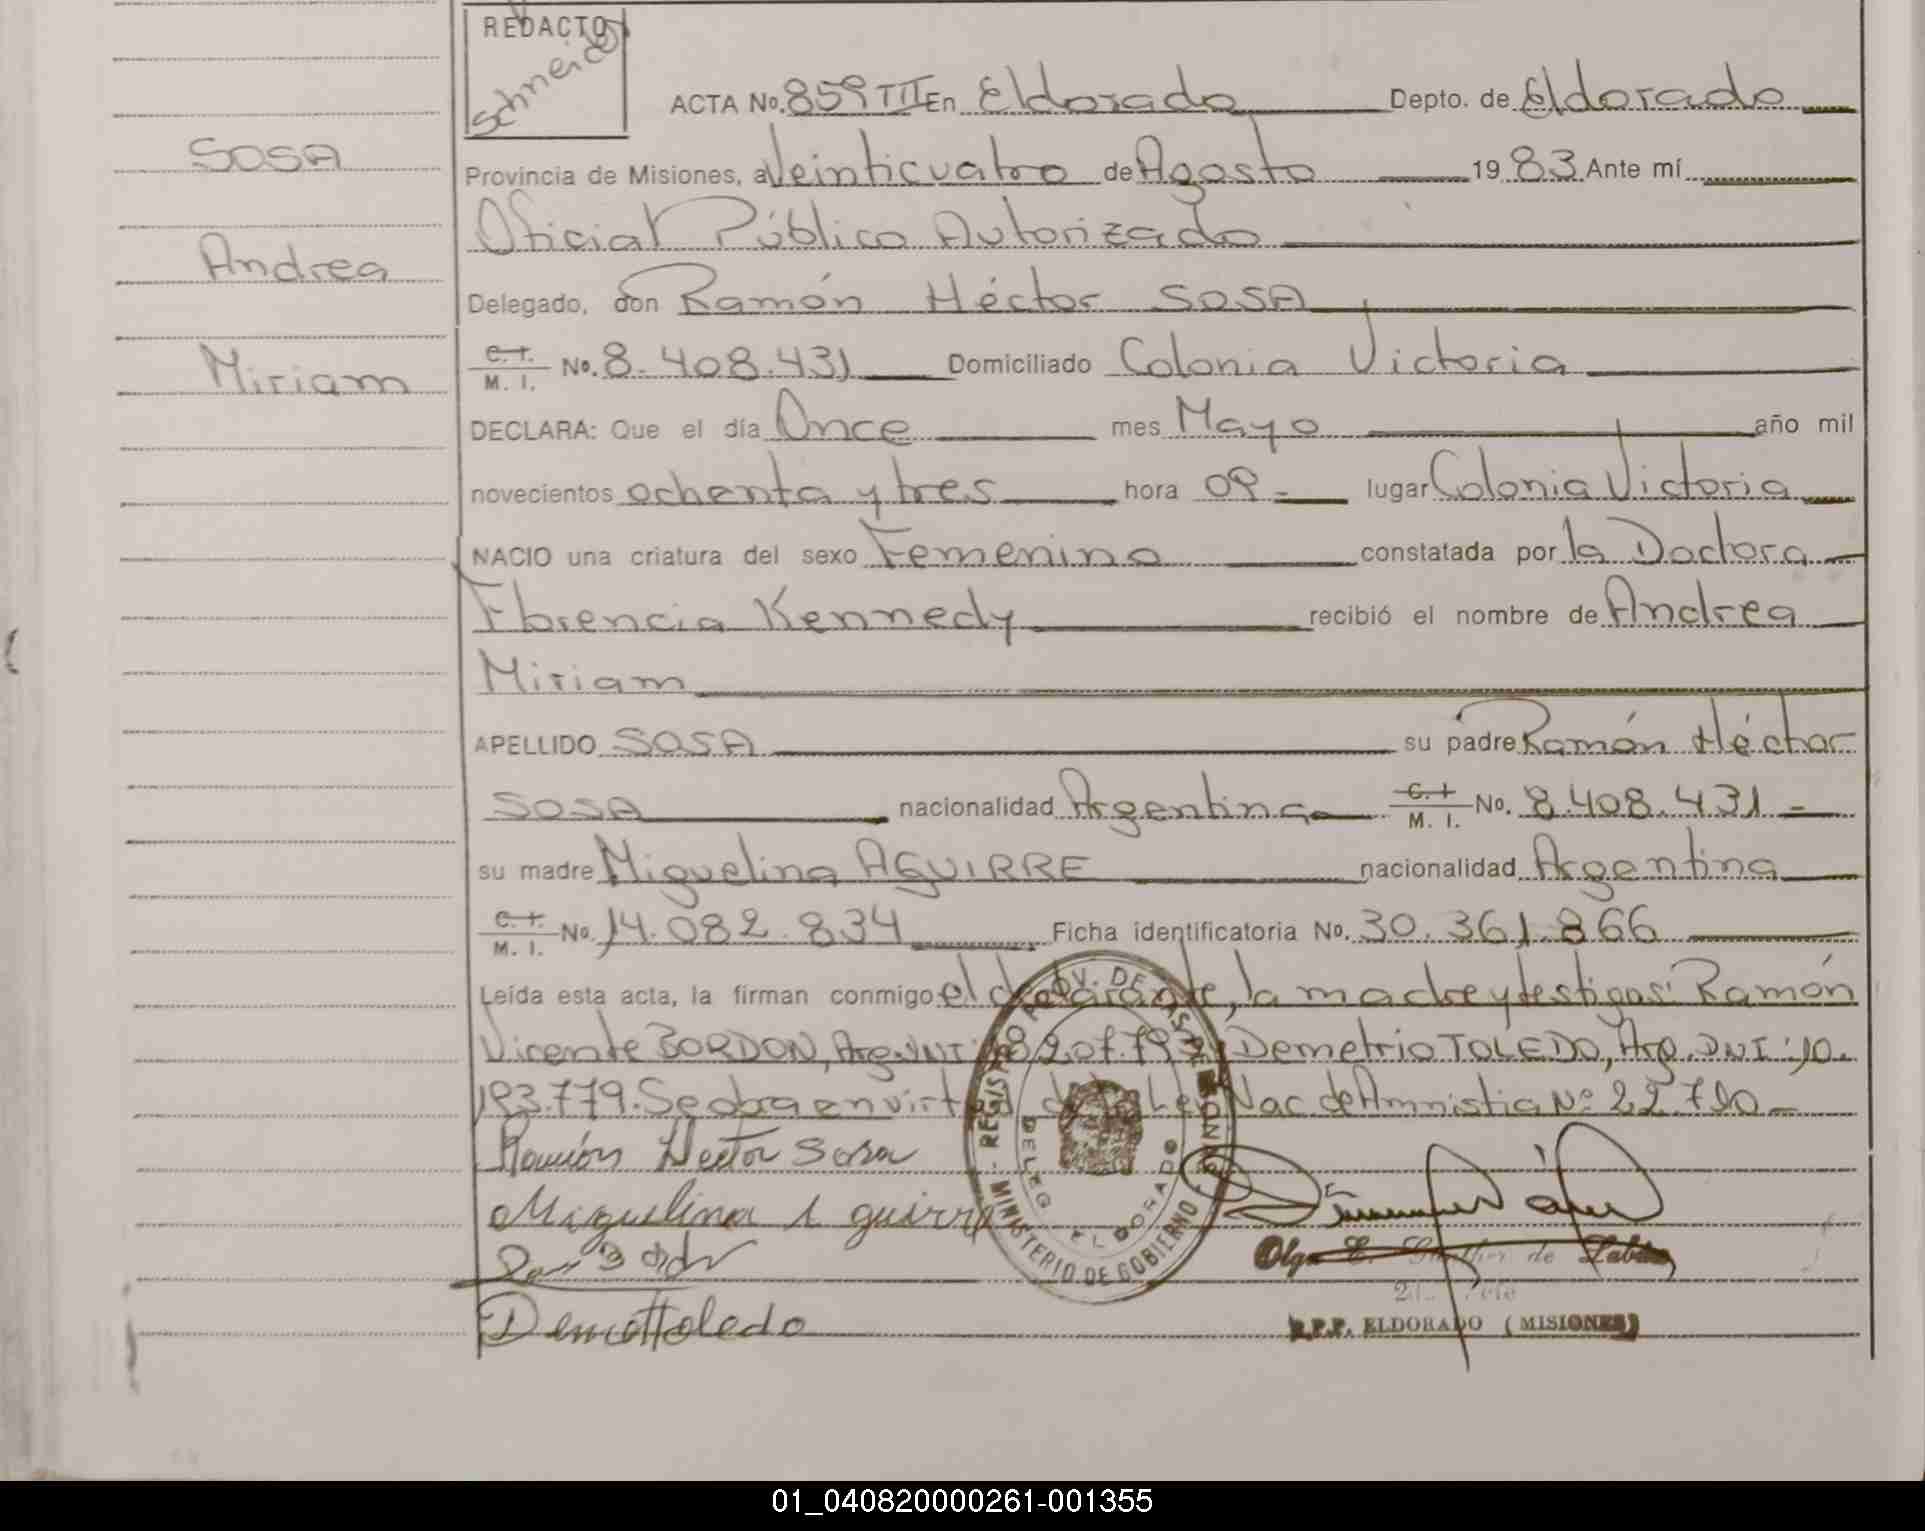 REDACTO
Schneider
ACTA No. 859 TIII En Eldorado Depto. de Eldorado
SOSA
Provincia de Misiones, a Veinticuatro de Agosto 19 83 Ante mí
Oficial Público Autorizado
Andrea
Delegado, don Ramón Héctor SOSA
Miriam
C. I. M. I. No. 8.408.431 Domiciliado Colonia Victoria
DECLARA: Que el día Once mes Mayo año mil
novecientos ochenta y tres hora 09 = lugar Colonia Victoria
NACIO una criatura del sexo Femenino constatada por la Doctora
Florencia Kennedy recibió el nombre de Andrea
Miriam
APELLIDO SOSA su padre Ramón Héctor
SOSA nacionalidad Argentina C. I. M. I. No. 8.408.431 =
su madre Miguelina AGUIRRE nacionalidad Argentina
C. I. M. I. No. 14.082.834 Ficha identificatoria No. 30.361.866
Leída esta acta, la firman conmigo el declarante, la madre y testigos: Ramón
Vicente BORDON, Arg. DNI Demetrio TOLEDO, Arg. DNI: 10.
193.779. Se obra en virtud de la Ley Nac de Amnistia Nº 22.790 -
Ramón Hector Sosa
Miguelina Aguirre
Demet Toledo
Olga E. de
R.P.P. ELDORADO (MISIONES)
MINISTERIO DE GOBIERNO
DELEG ELDORADO
01_040820000261-001355